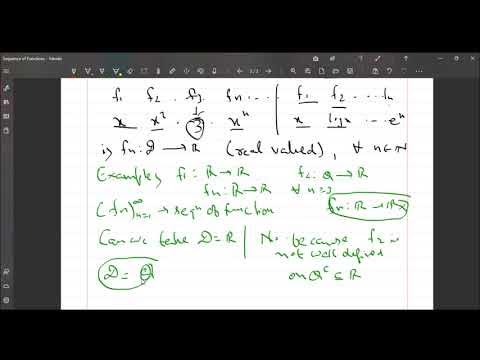 Sequence of Functions - Xournal
f₁ f₂ .. f₃ fn .... | f₁ f₂ .... fn
x x² . 3 . xⁿ | x log x .... eˣ
is fn : D → ℝ (real valued), ∀ n ∈ ℕ
Examples f₁ : ℝ → ℝ f₂ : Q → ℝ
fn : ℝ → ℝ ∀ n ≥ 3 fn : ℝ → ℝ
(fn)_{n=1}^∞ → seqn of function
Can we take D = ℝ | No. because f₂ is
not well defined
D = Q on Qᶜ ⊆ ℝ